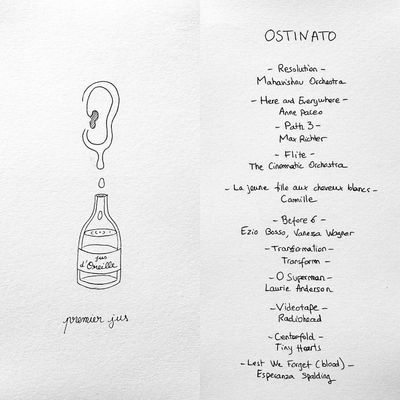 jus
d'Oreille
premier jus
OSTINATO
- Resolution -
Mahavishnu Orchestra
- Here and Everywhere -
Anne Paceo
- Path 3 -
Max Richter
- Flite -
The Cinematic Orchestra
- La jeune fille aux cheveux blancs -
Camille
- Before 6 -
Ezio Bosso, Vanessa Wagner
- Transformation -
Transform -
- O Superman -
Laurie Anderson
- Videotape -
Radiohead
- Centerfold -
Tiny Hearts
- Lest We Forget (blood) -
Esperanza Spalding